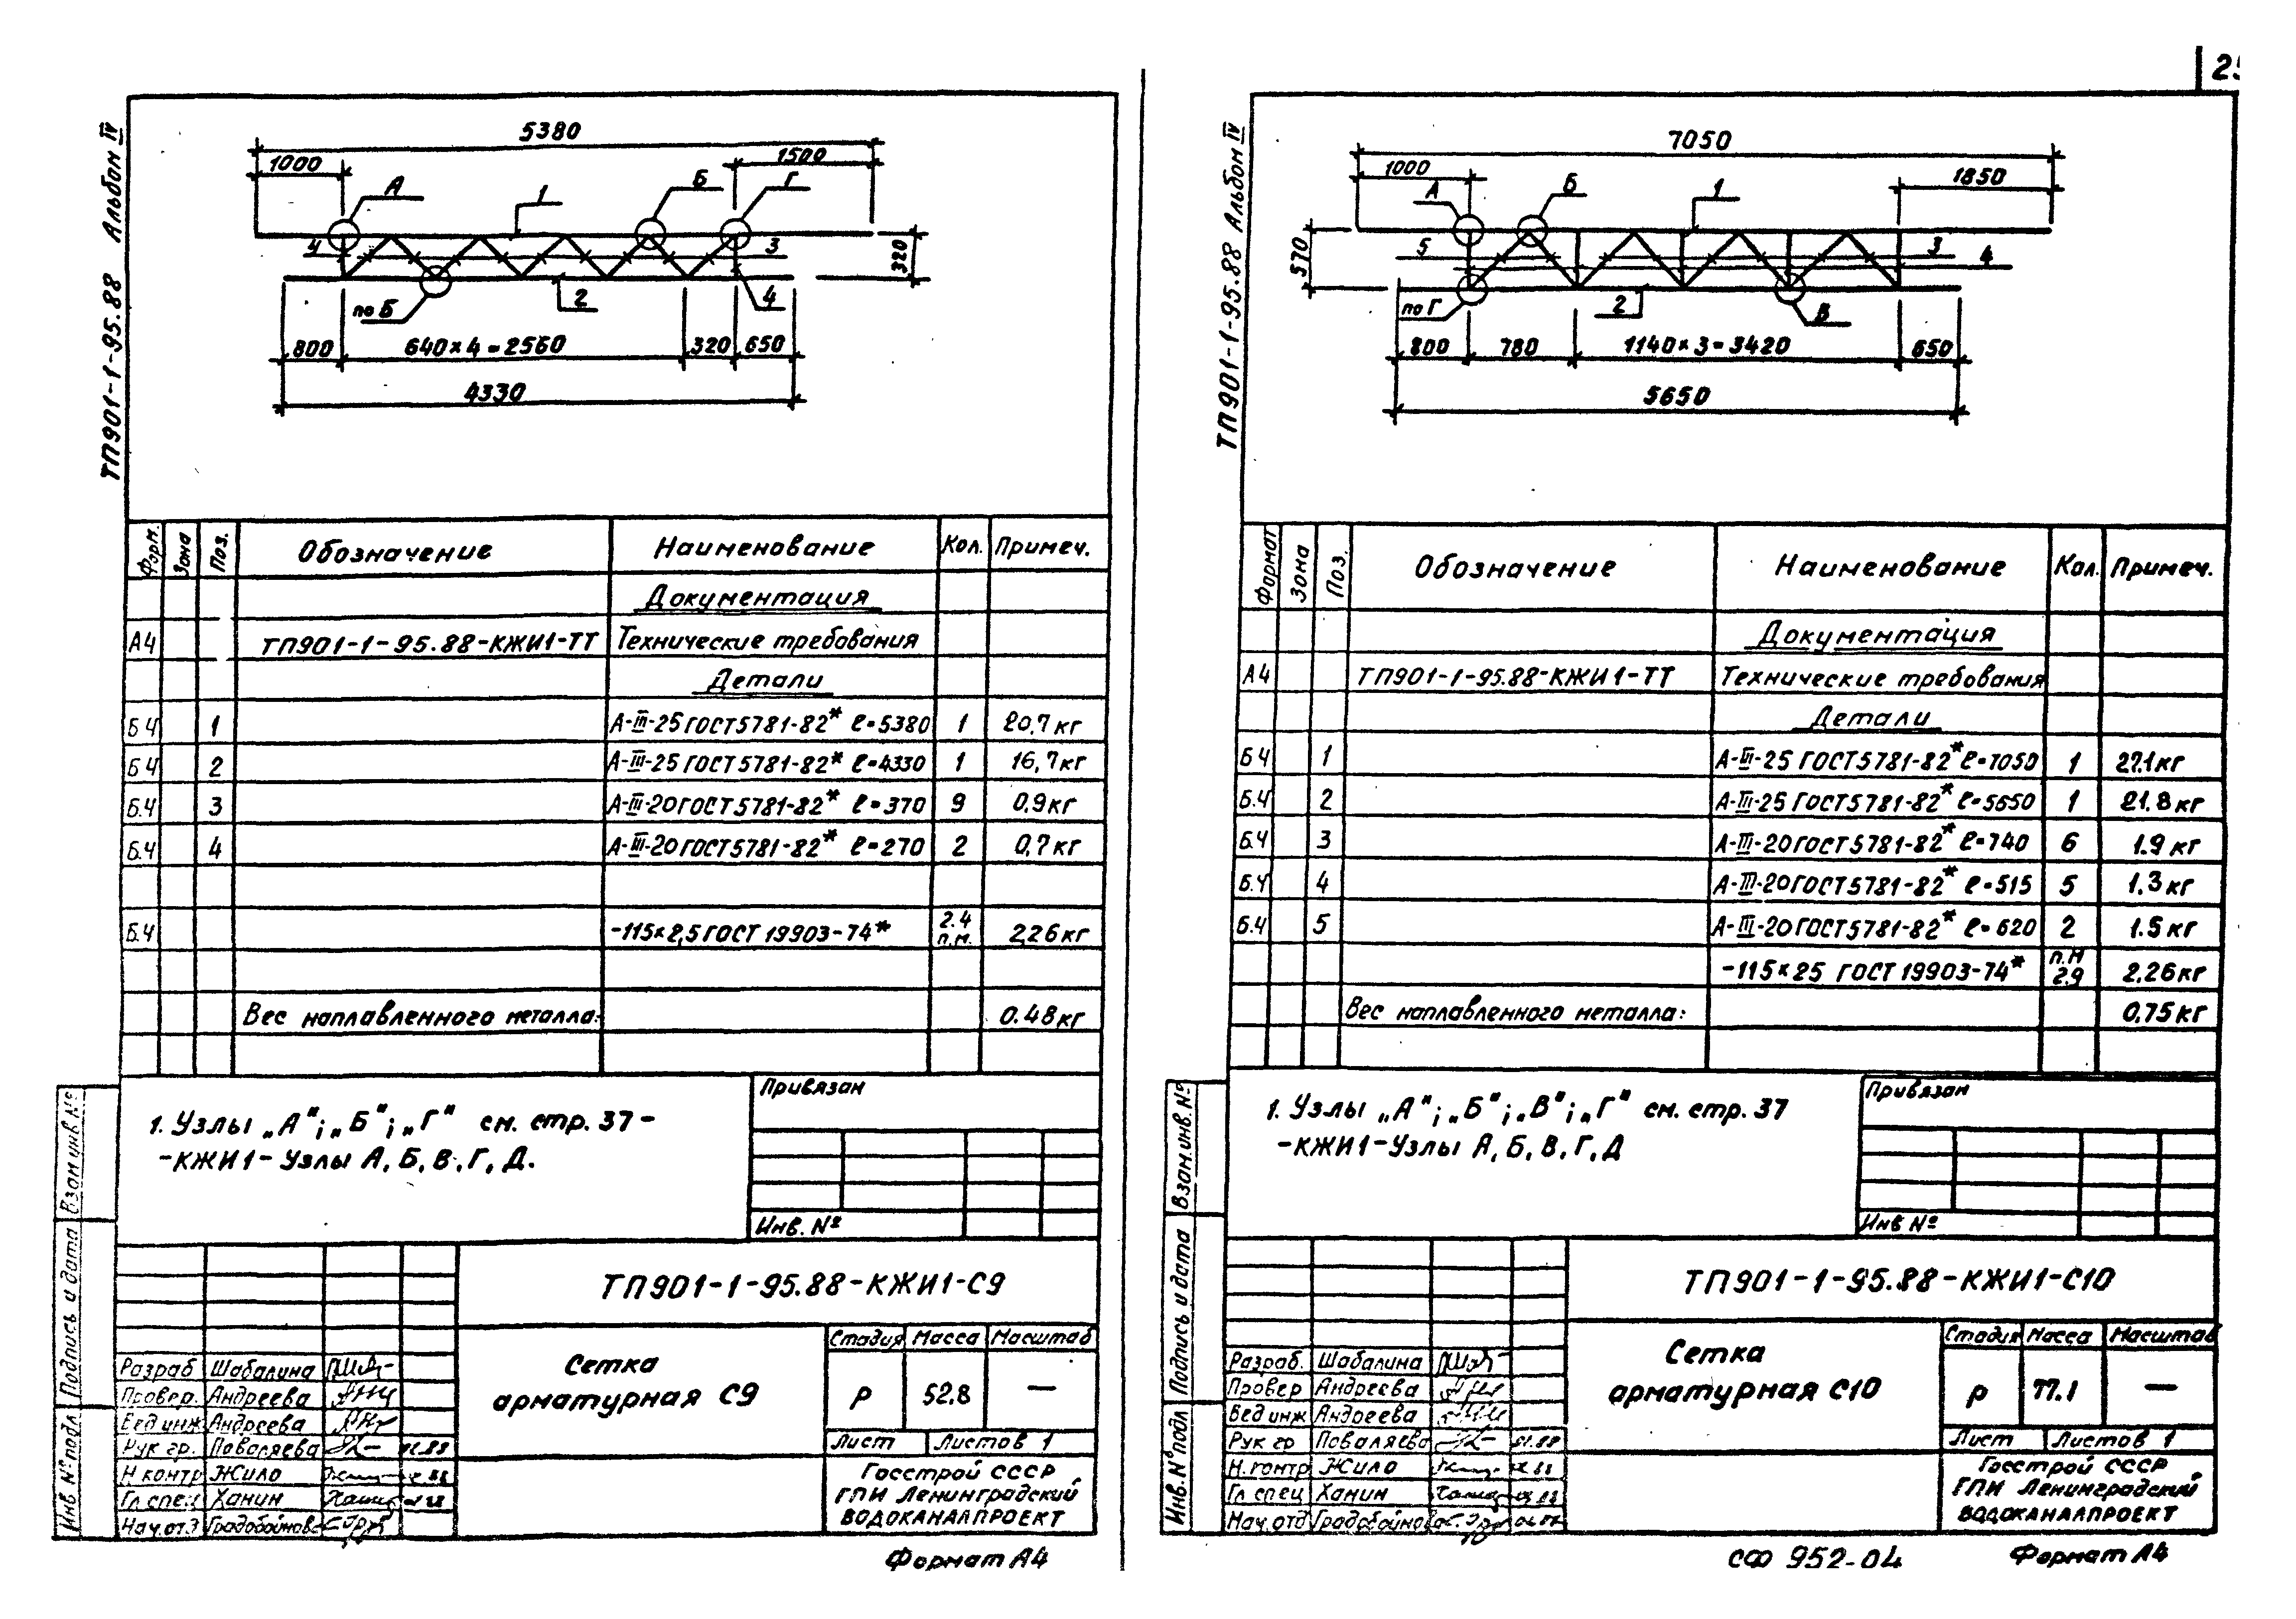 ТП901-1-95.88 Альбом IV
5380
1000
1500
А
1
Б
Г
4
3
320
по Б
2
4
800
640×4=2560
320
650
4330
Форм.
Зона
Поз.
Обозначение
Наименование
Кол.
Примеч.
Документация
А4 ТП901-1-95.88-КЖИ1-ТТ Технические требования
Детали
Б.4 1 А-III-25 ГОСТ5781-82* ℓ=5380 1 20,7кг
Б.4 2 А-III-25 ГОСТ5781-82* ℓ=4330 1 16,7кг
Б.4 3 А-III-20 ГОСТ5781-82* ℓ=370 9 0,9кг
Б.4 4 А-III-20 ГОСТ5781-82* ℓ=270 2 0,7кг
Б.4 -115×2,5 ГОСТ 19903-74* 2.4 п.м. 2,26кг
Вес наплавленного металла: 0.48кг
1. Узлы „А"; „Б"; „Г" см. стр. 37-
-КЖИ1-Узлы А, Б, В, Г, Д.
Привязан
Инв. №
Взам инв. №
Подпись и дата
Инв № подл
ТП901-1-95.88-КЖИ1-С9
Сетка
арматурная С9
Стадия Масса Масштаб
Р 52.8 —
Лист Листов 1
Разраб Шабалина
Провер. Андреева
Вед инж Андреева
Рук гр. Поваляева
Н контр Жило
Гл спец Ханин
Нач.отд Градобойнов
Госстрой СССР
ГПИ Ленинградский
ВОДОКАНАЛПРОЕКТ
Формат А4
ТП901-1-95.88 Альбом IV
7050
1000
1850
А
Б
1
570
5
3
4
по Г
2
В
800
780
1140×3=3420
650
5650
Формат
Зона
Поз.
Обозначение
Наименование
Кол.
Примеч.
Документация
А4 ТП901-1-95.88-КЖИ1-ТТ Технические требования
Детали
Б.4 1 А-III-25 ГОСТ5781-82* ℓ=7050 1 27.1кг
Б.4 2 А-III-25 ГОСТ5781-82* ℓ=5650 1 21.8кг
Б.4 3 А-III-20 ГОСТ5781-82* ℓ=740 6 1.9кг
Б.4 4 А-III-20 ГОСТ5781-82* ℓ=515 5 1.3кг
Б.4 5 А-III-20 ГОСТ5781-82* ℓ=620 2 1.5кг
-115×25 ГОСТ 19903-74* п.м 2.9 2,26кг
Вес наплавленного металла: 0,75кг
1. Узлы „А"; „Б"; „В"; „Г" см. стр. 37
-КЖИ1-Узлы А, Б, В, Г, Д
Привязан
Инв №
Взам.инв. №
Подпись и дата
Инв. № подл
ТП901-1-95.88-КЖИ1-С10
Сетка
арматурная С10
Стадия Масса Масштаб
Р 77.1 —
Лист Листов 1
Разраб. Шабалина
Провер Андреева
Вед инж Андреева
Рук гр Поваляева
Н.контр Жило
Гл спец Ханин
Нач.отд Градобойнов
Госстрой СССР
ГПИ Ленинградский
ВОДОКАНАЛПРОЕКТ
СФ 952-04
Формат А4